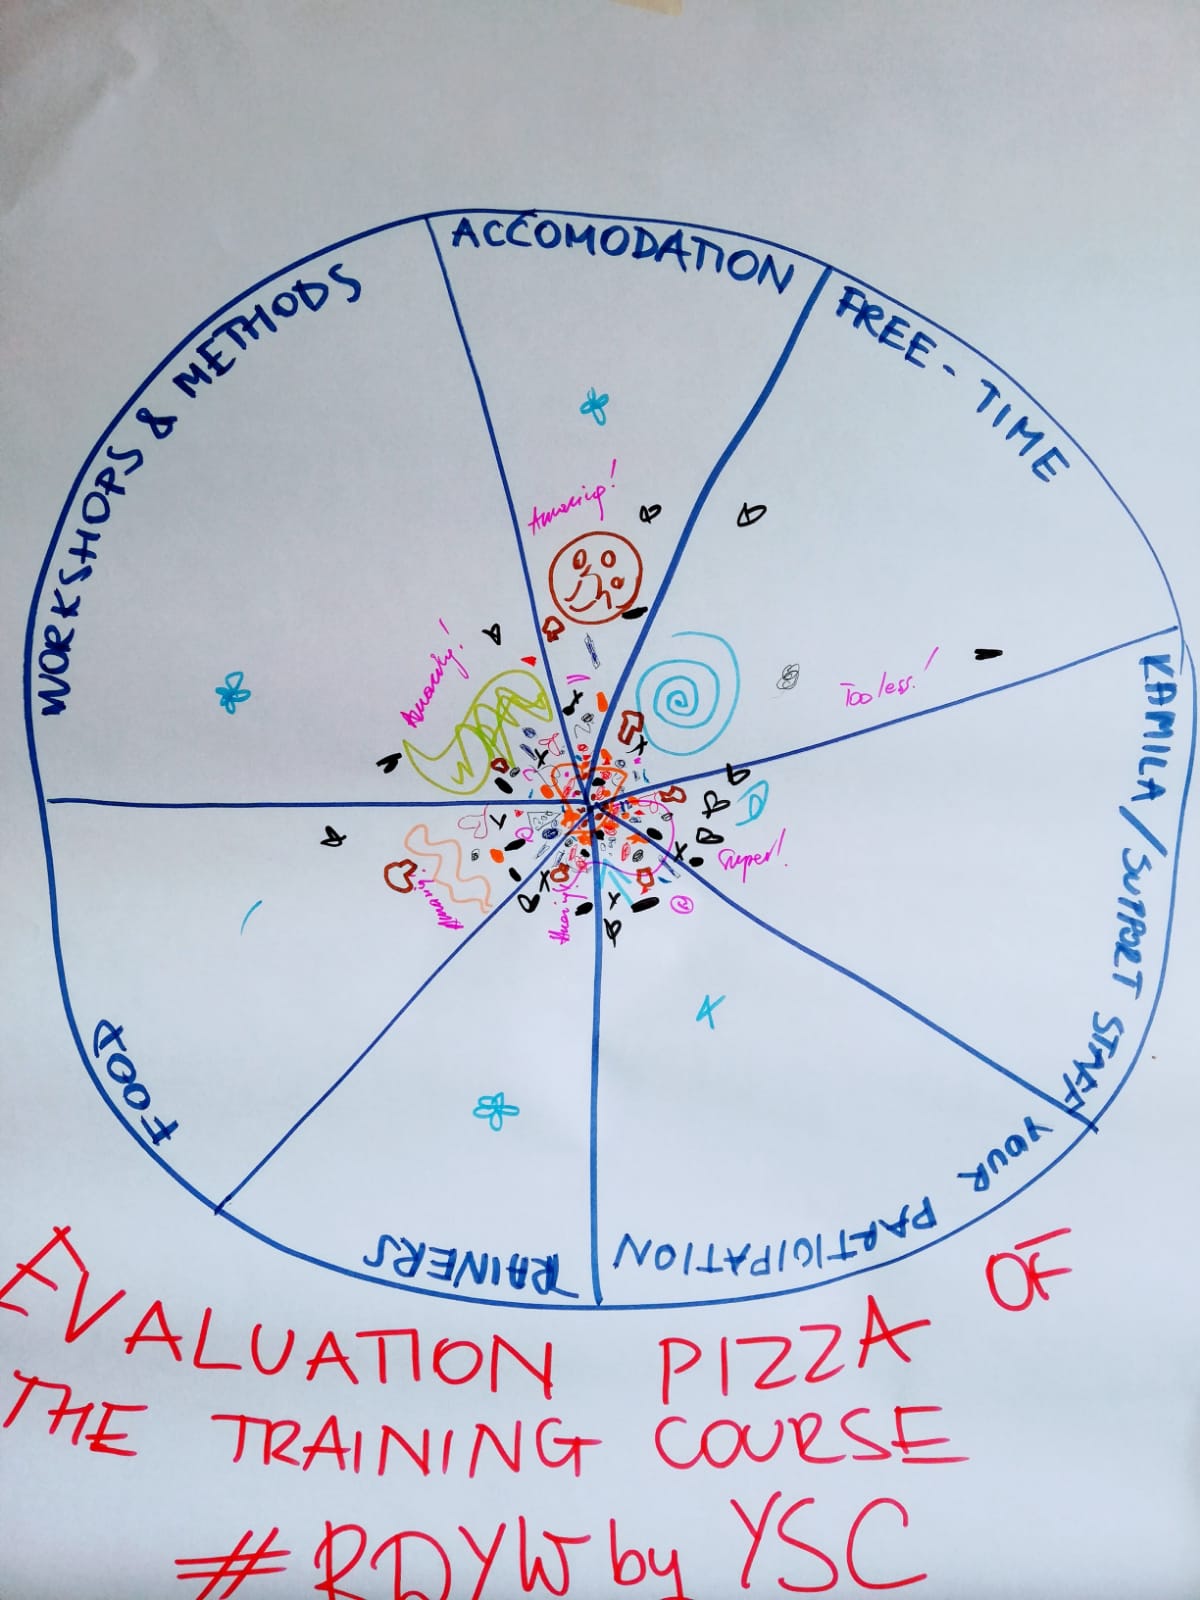 ACCOMODATION
FREE-TIME
WORKSHOPS & METHODS
KAMILA/SUPPORT STAFF
YOUR PARTICIPATION
TRAINERS
FOOD
Amazing!
Amazing!
Too less!
Super!
Amazing!
EVALUATION PIZZA OF
THE TRAINING COURSE
#RDYW by YSC